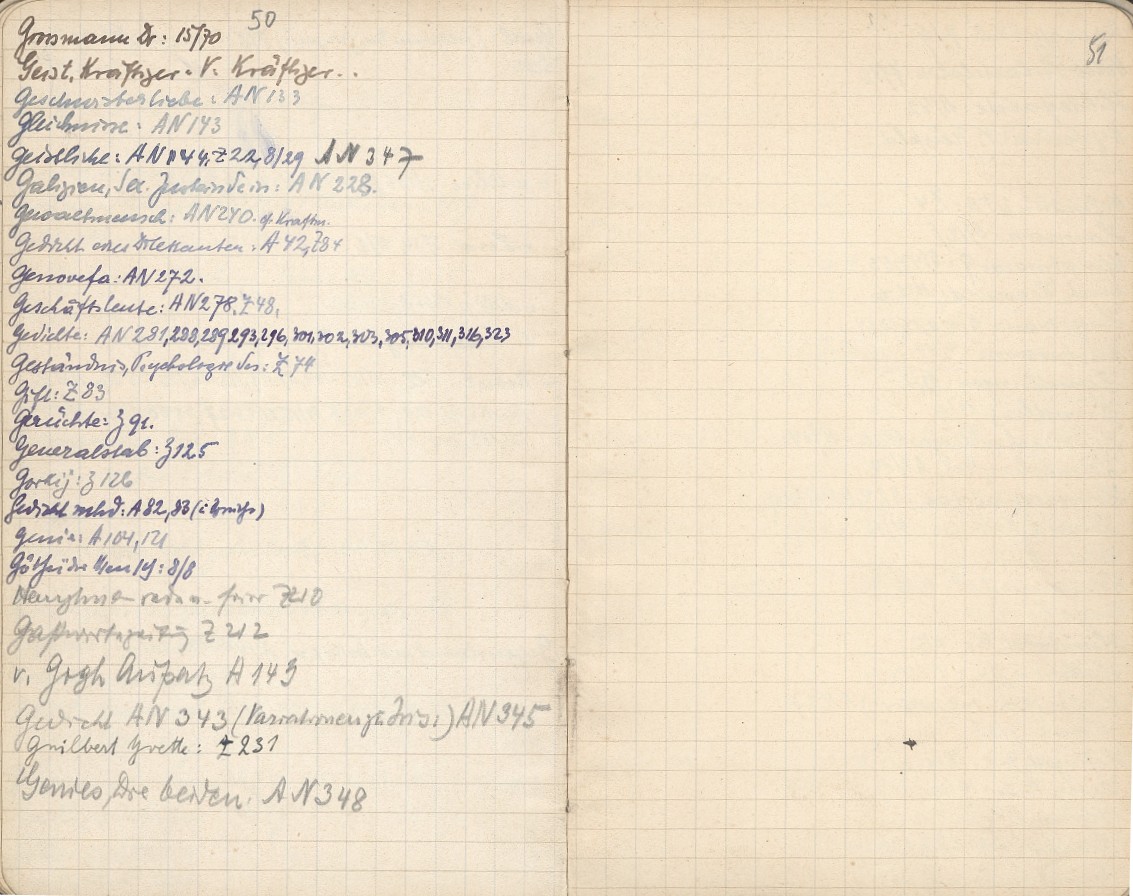 50
Grossmann Dr: 15/70
Geist, Kräftiger - V. Kräftiger..
Geschwisterliebe: AN 133
Gleichnisse: AN 143
Geistliche: AN 144, Z 22, 8/29 AN 347
Galizien, : AN 228.
Gewaltmensch: AN 240. cf. Kraftm.
Gedicht eines Dilettanten: A 42, Z 84
Genovefa: AN 272.
Geschäftsleute: AN 278, Z 48,
Gedichte: AN 281, 288, 289, 293, 296, 301, 302, 303, 305, 310, 311, 316, 323
Geständnis, Psychologie des: Z 74
Gift: Z 83
Gerüchte: Z 91.
Generalstab: Z 125
Gorkij: Z 126
Gedicht mhd: A 82, 83
Genie: A 104, 121
: 8/8
Z 210
Gastwirtszeitung Z 212
v. Gogh Aufsatz A 149
Gedicht AN 343 (Variationen) AN 345
Guilbert Yvette: Z 231
Genies, Die beiden. AN 348
51